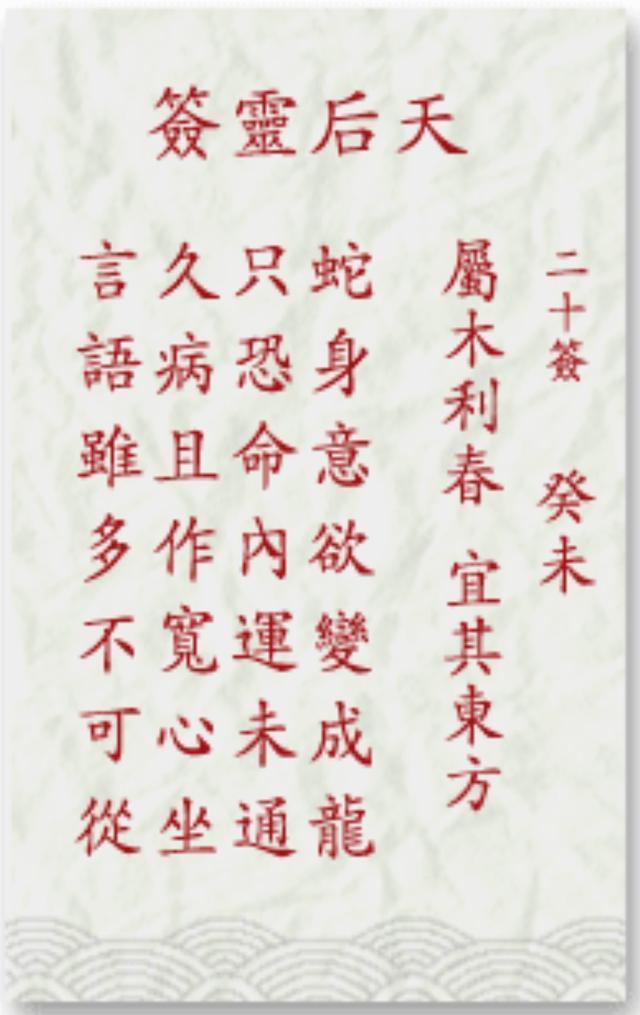 天后靈簽
二十簽 癸未
屬木利春 宜其東方
蛇身意欲變成龍
只恐命內運未通
久病且作寬心坐
言語雖多不可從